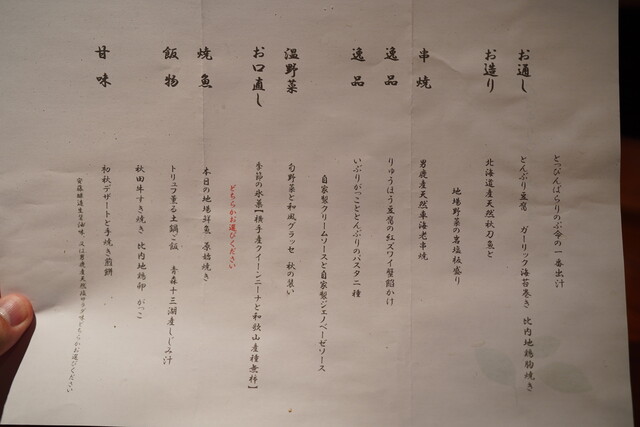 お通し
とっぴんぱらりのぷ命の一番出汁
とんぶり豆富　ガーリック海苔巻き　比内地鶏駒焼き
お造り
北海道産天然秋刀魚と
地場野菜の岩塩板盛り
串焼
男鹿産天然車海老串焼
逸品
りゅうほう豆富の紅ズワイ蟹餡かけ
逸品
いぶりがっことんぶりのパスタ二種
自家製クリームソースと自家製ジェノベーゼソース
温野菜
旬野菜と和風グラッセ　秋の装い
お口直し
季節の氷菓【横手産クイーンニーナと和歌山産種無柿】
どちらかお選びください
焼魚
本日の地場鮮魚　原始焼き
飯物
トリュフ薫る土鍋ご飯　青森十三湖産しじみ汁
秋田牛すき焼き　比内地鶏卵　がっこ
甘味
初秋デザートと手焼き煎餅
安藤醸造生醤油味　又は男鹿産天然塩サラダ味どちらかお選びください